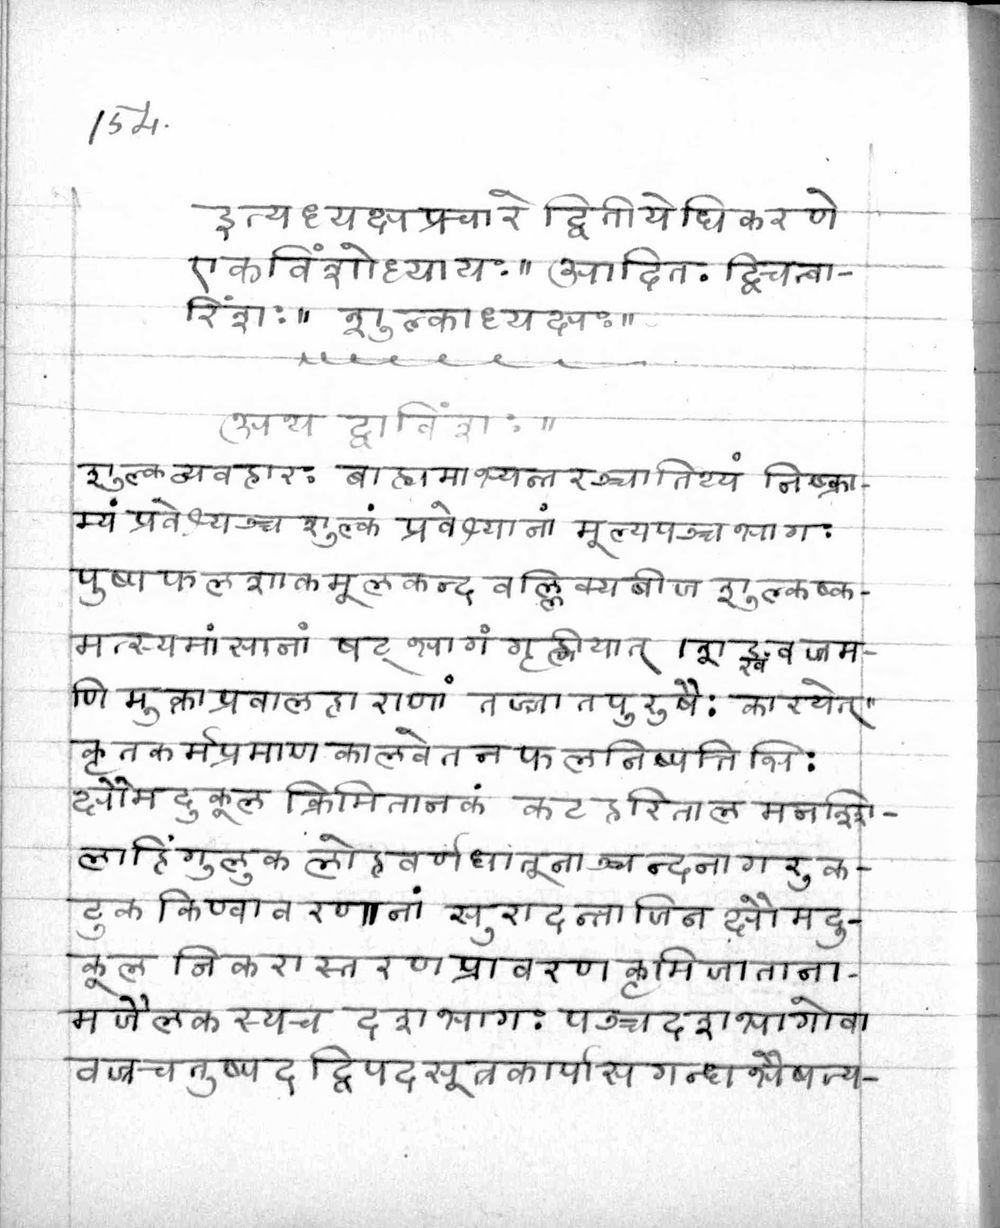 154.
इत्यध्यक्षप्रचारे द्वितीयेधिकरणे
एकविंशोध्यायः॥ आदितः द्विचत्वा-
रिंशः॥ शुल्काध्यक्षः॥
अथ द्वाविंशः॥
शुल्कव्यवहारः बाह्यमाभ्यन्तरञ्चातिथ्यं निष्क्रा-
म्यं प्रवेश्यञ्च शुल्कं प्रवेश्यानां मूल्यपञ्चभागः
पुष्पफलशाकमूलकन्दवल्लिक्यबीज शुल्कष्क-
मत्स्यमांसानां षट् भागं गृह्णीयात् । शङ्खवज्रम-
णिमुक्ताप्रवालहाराणां तज्जातपुरुषैः कारयेत्॥
कृतकर्मप्रमाणकालवेतनफलनिष्पत्तिभिः
क्षौमदुकूल क्रिमितानकं कटहरिताल मनश्शि-
लाहिंगुलुक लोहवर्णधातूनाञ्चन्दनागरुक-
टुककिण्वावरणानां सुरादन्ताजिन क्षौमदु-
कूल निकरास्तरणप्रावरणकृमिजाताना-
मजैलकस्यच दशभागः पञ्चदशभागोवा
वस्त्रचतुष्पदद्विपदसूत्रकार्पासगन्धभैषज्य-